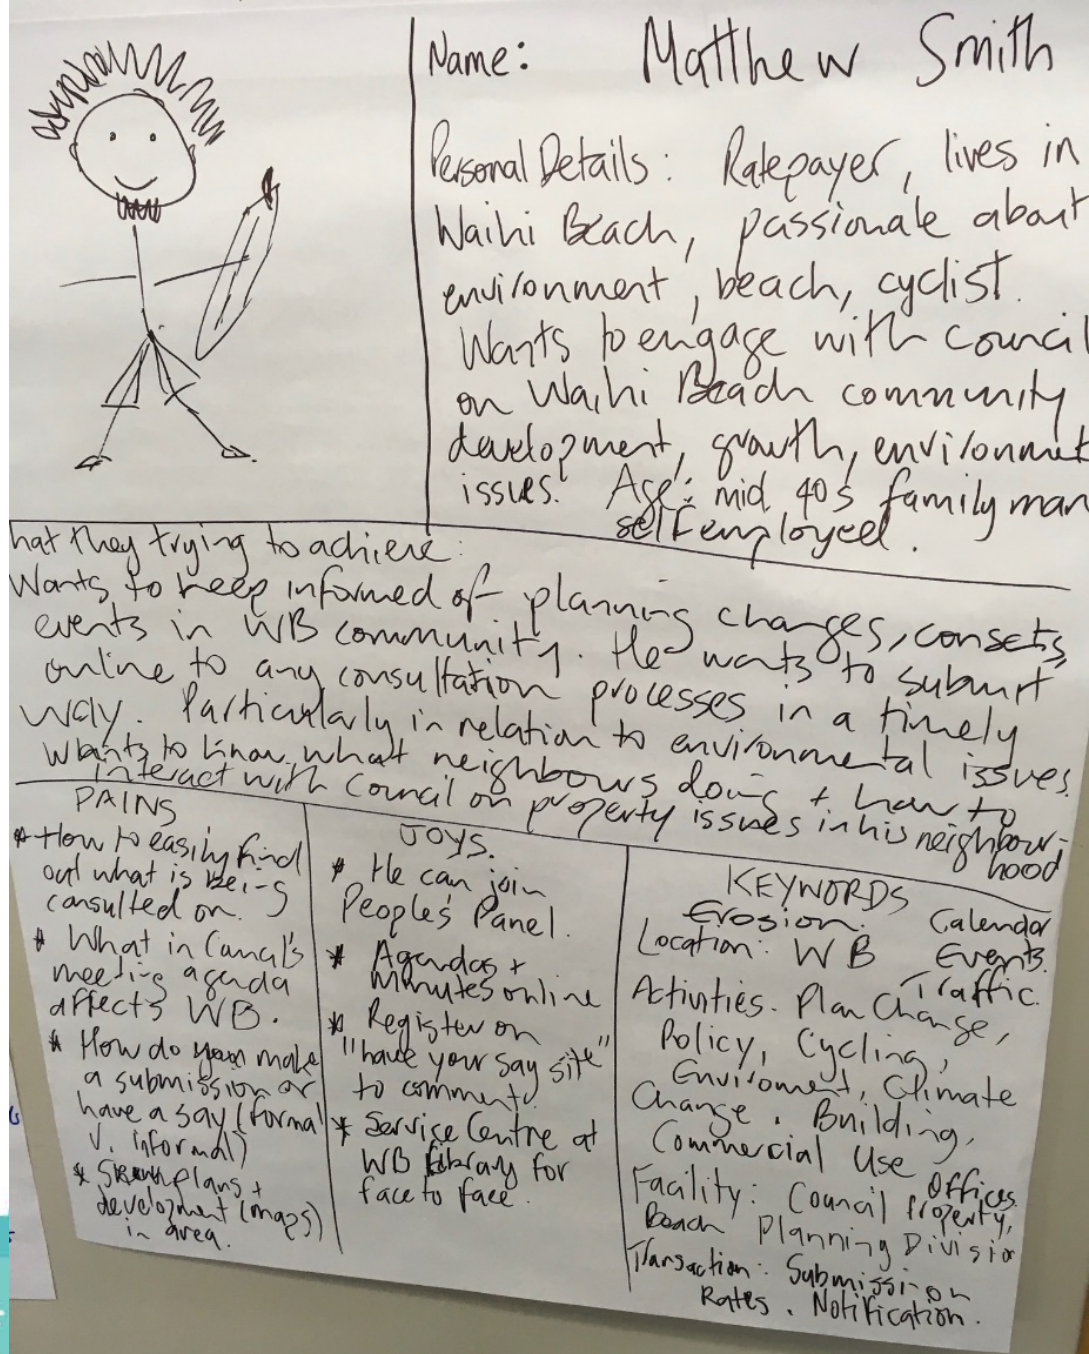 Name: Matthew Smith
Personal Details: Ratepayer, lives in
Waihi Beach, passionate about
environment, beach, cyclist.
Wants to engage with council
on Waihi Beach community
development, growth, environmet
issues. Age: mid 40s family man
self employed.
hat they trying to achieve:
Wants to keep informed of planning changes, consets,
events in WB community. He wants to submit
online to any consultation processes in a timely
way. Particularly in relation to environmental issues.
Wants to know what neighbours doing + how to
interact with Council on property issues in his neighbour-
hood
PAINS
* How to easily find
out what is being
consulted on.
* What in Council's
meeting agenda
affects WB.
* How do you make
a submission or
have a say (formal
v. informal)
* plans +
development (maps)
in area.
JOYS.
* He can join
People's Panel.
* Agendas +
Minutes online
* Register on
"have your say site"
to comment.
* Service Centre at
WB library for
face to face.
KEYWORDS
Erosion. Calendar
Location: WB Events.
Traffic.
Activities. Plan Change,
Policy, Cycling,
Enviroment, Climate
Change. Building,
Commercial Use
Offices.
Facility: Council Property,
Beach Planning Divisio
Transaction: Submission
Rates. Notification.